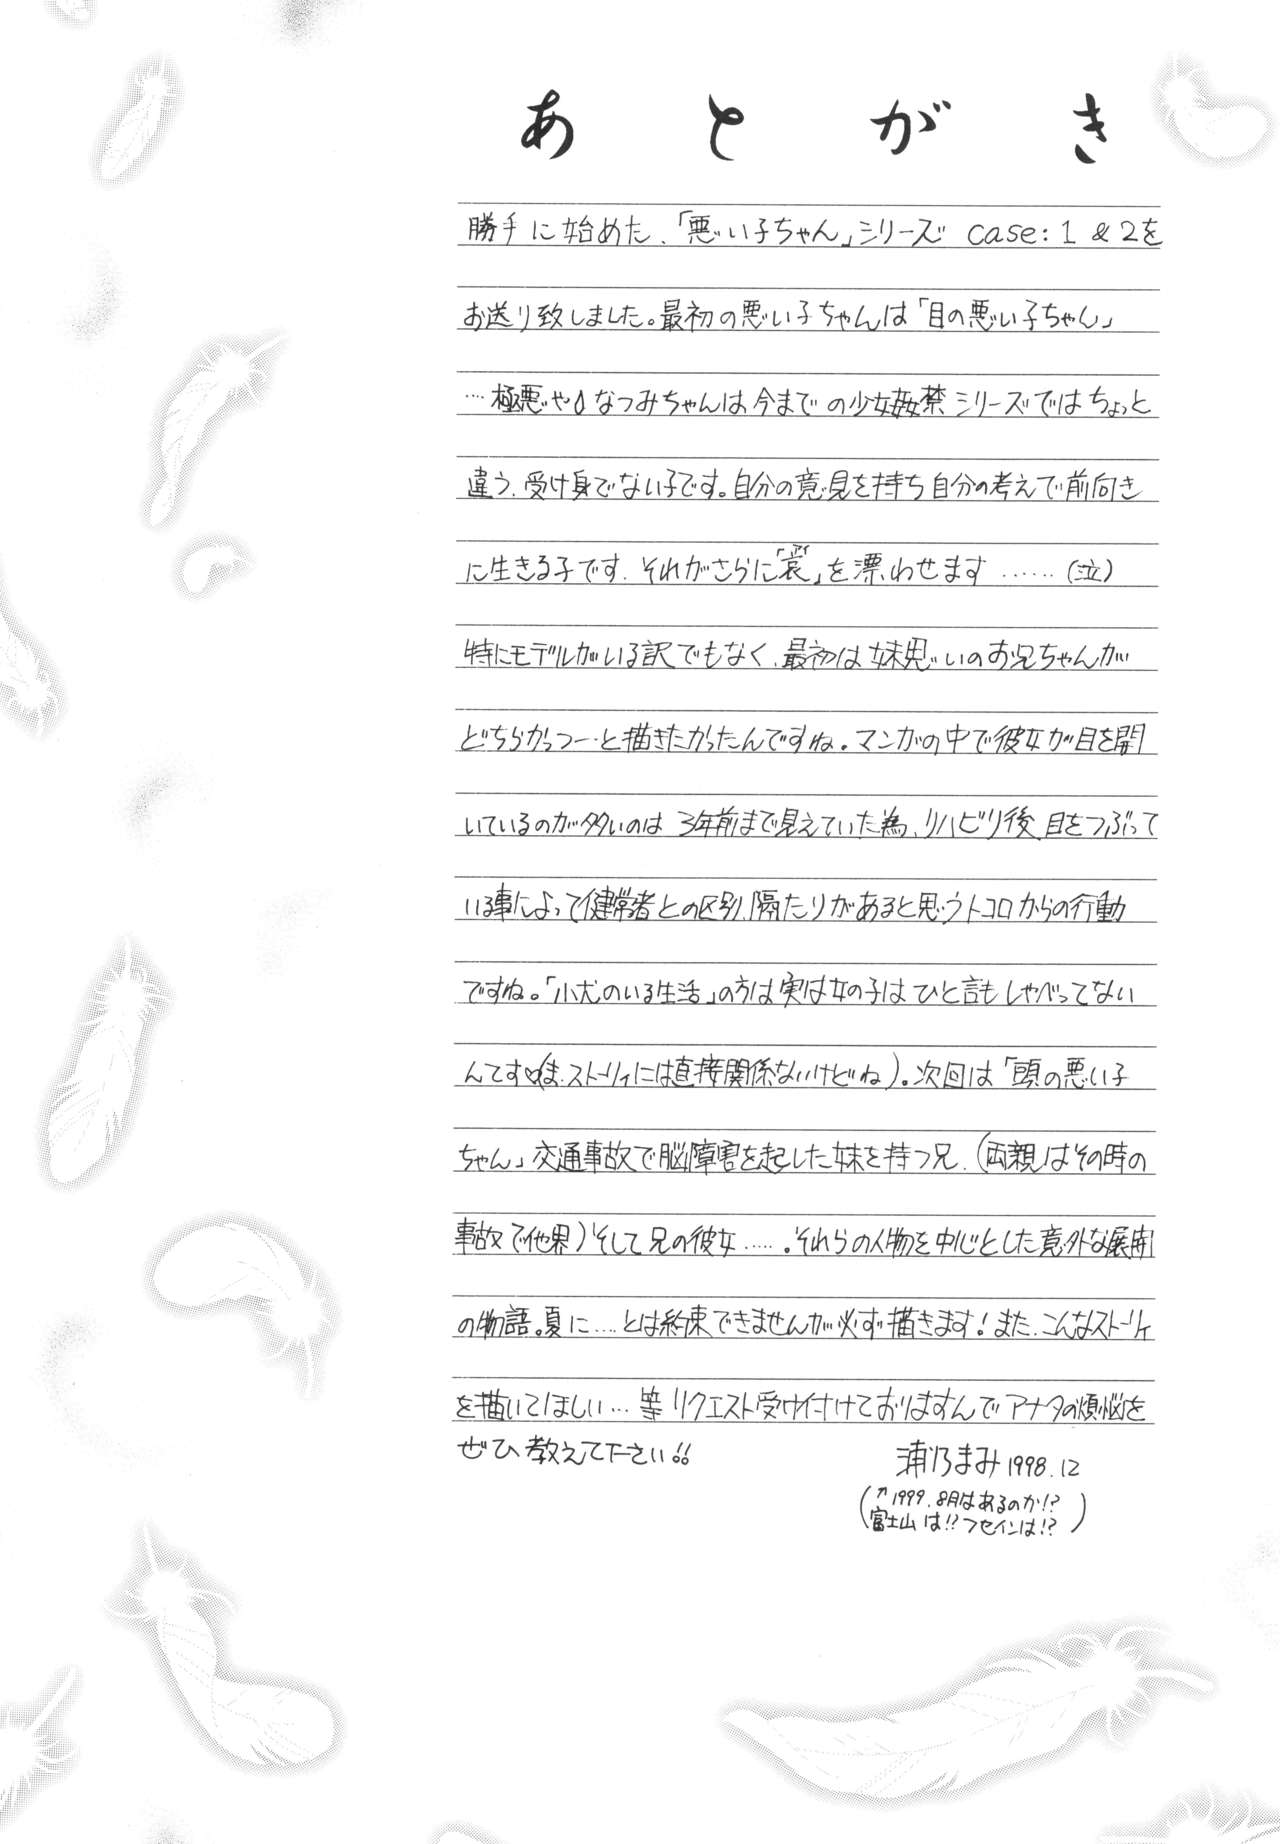 あとがき
勝手に始めた、「悪い子ちゃん」シリーズ case:1 & 2を
お送り致しました。最初の悪い子ちゃんは「目の悪い子ちゃん」
…極悪や♪なつみちゃんは今までの少女姦禁シリーズではちょっと
違う、受け身でない子です。自分の意見を持ち自分の考えで前向き
に生きる子です。それがさらに「哀」を漂わせます……(泣)
特にモデルがいる訳でもなく、最初は妹思いのお兄ちゃんが
どちらかっつー…と描きたかったんですね。マンガの中で彼女が目を開
いているのが多いのは3年前まで見えていた為、リハビリ後、目をつぶって
いる事によって健常者との区別、隔たりがあると思うトコロからの行動
ですね。「小犬のいる生活」の方は実は女の子はひと言もしゃべってない
んです(ま、ストーリィには直接関係ないけどね)。次回は「頭の悪い子
ちゃん」交通事故で脳障害を起した妹を持つ兄、(両親はその時の
事故で他界)そして兄の彼女……。それらの人物を中心とした意外な展開
の物語。夏に……とは約束できませんが必ず描きます!また、こんなストーリィ
を描いてほしい…等リクエスト受け付けておりますんでアナタの煩悩を
ぜひ教えて下さい!!
浦乃まみ 1998.12
(↑1999.8月はあるのか!?
富士山は!?フセインは!?)